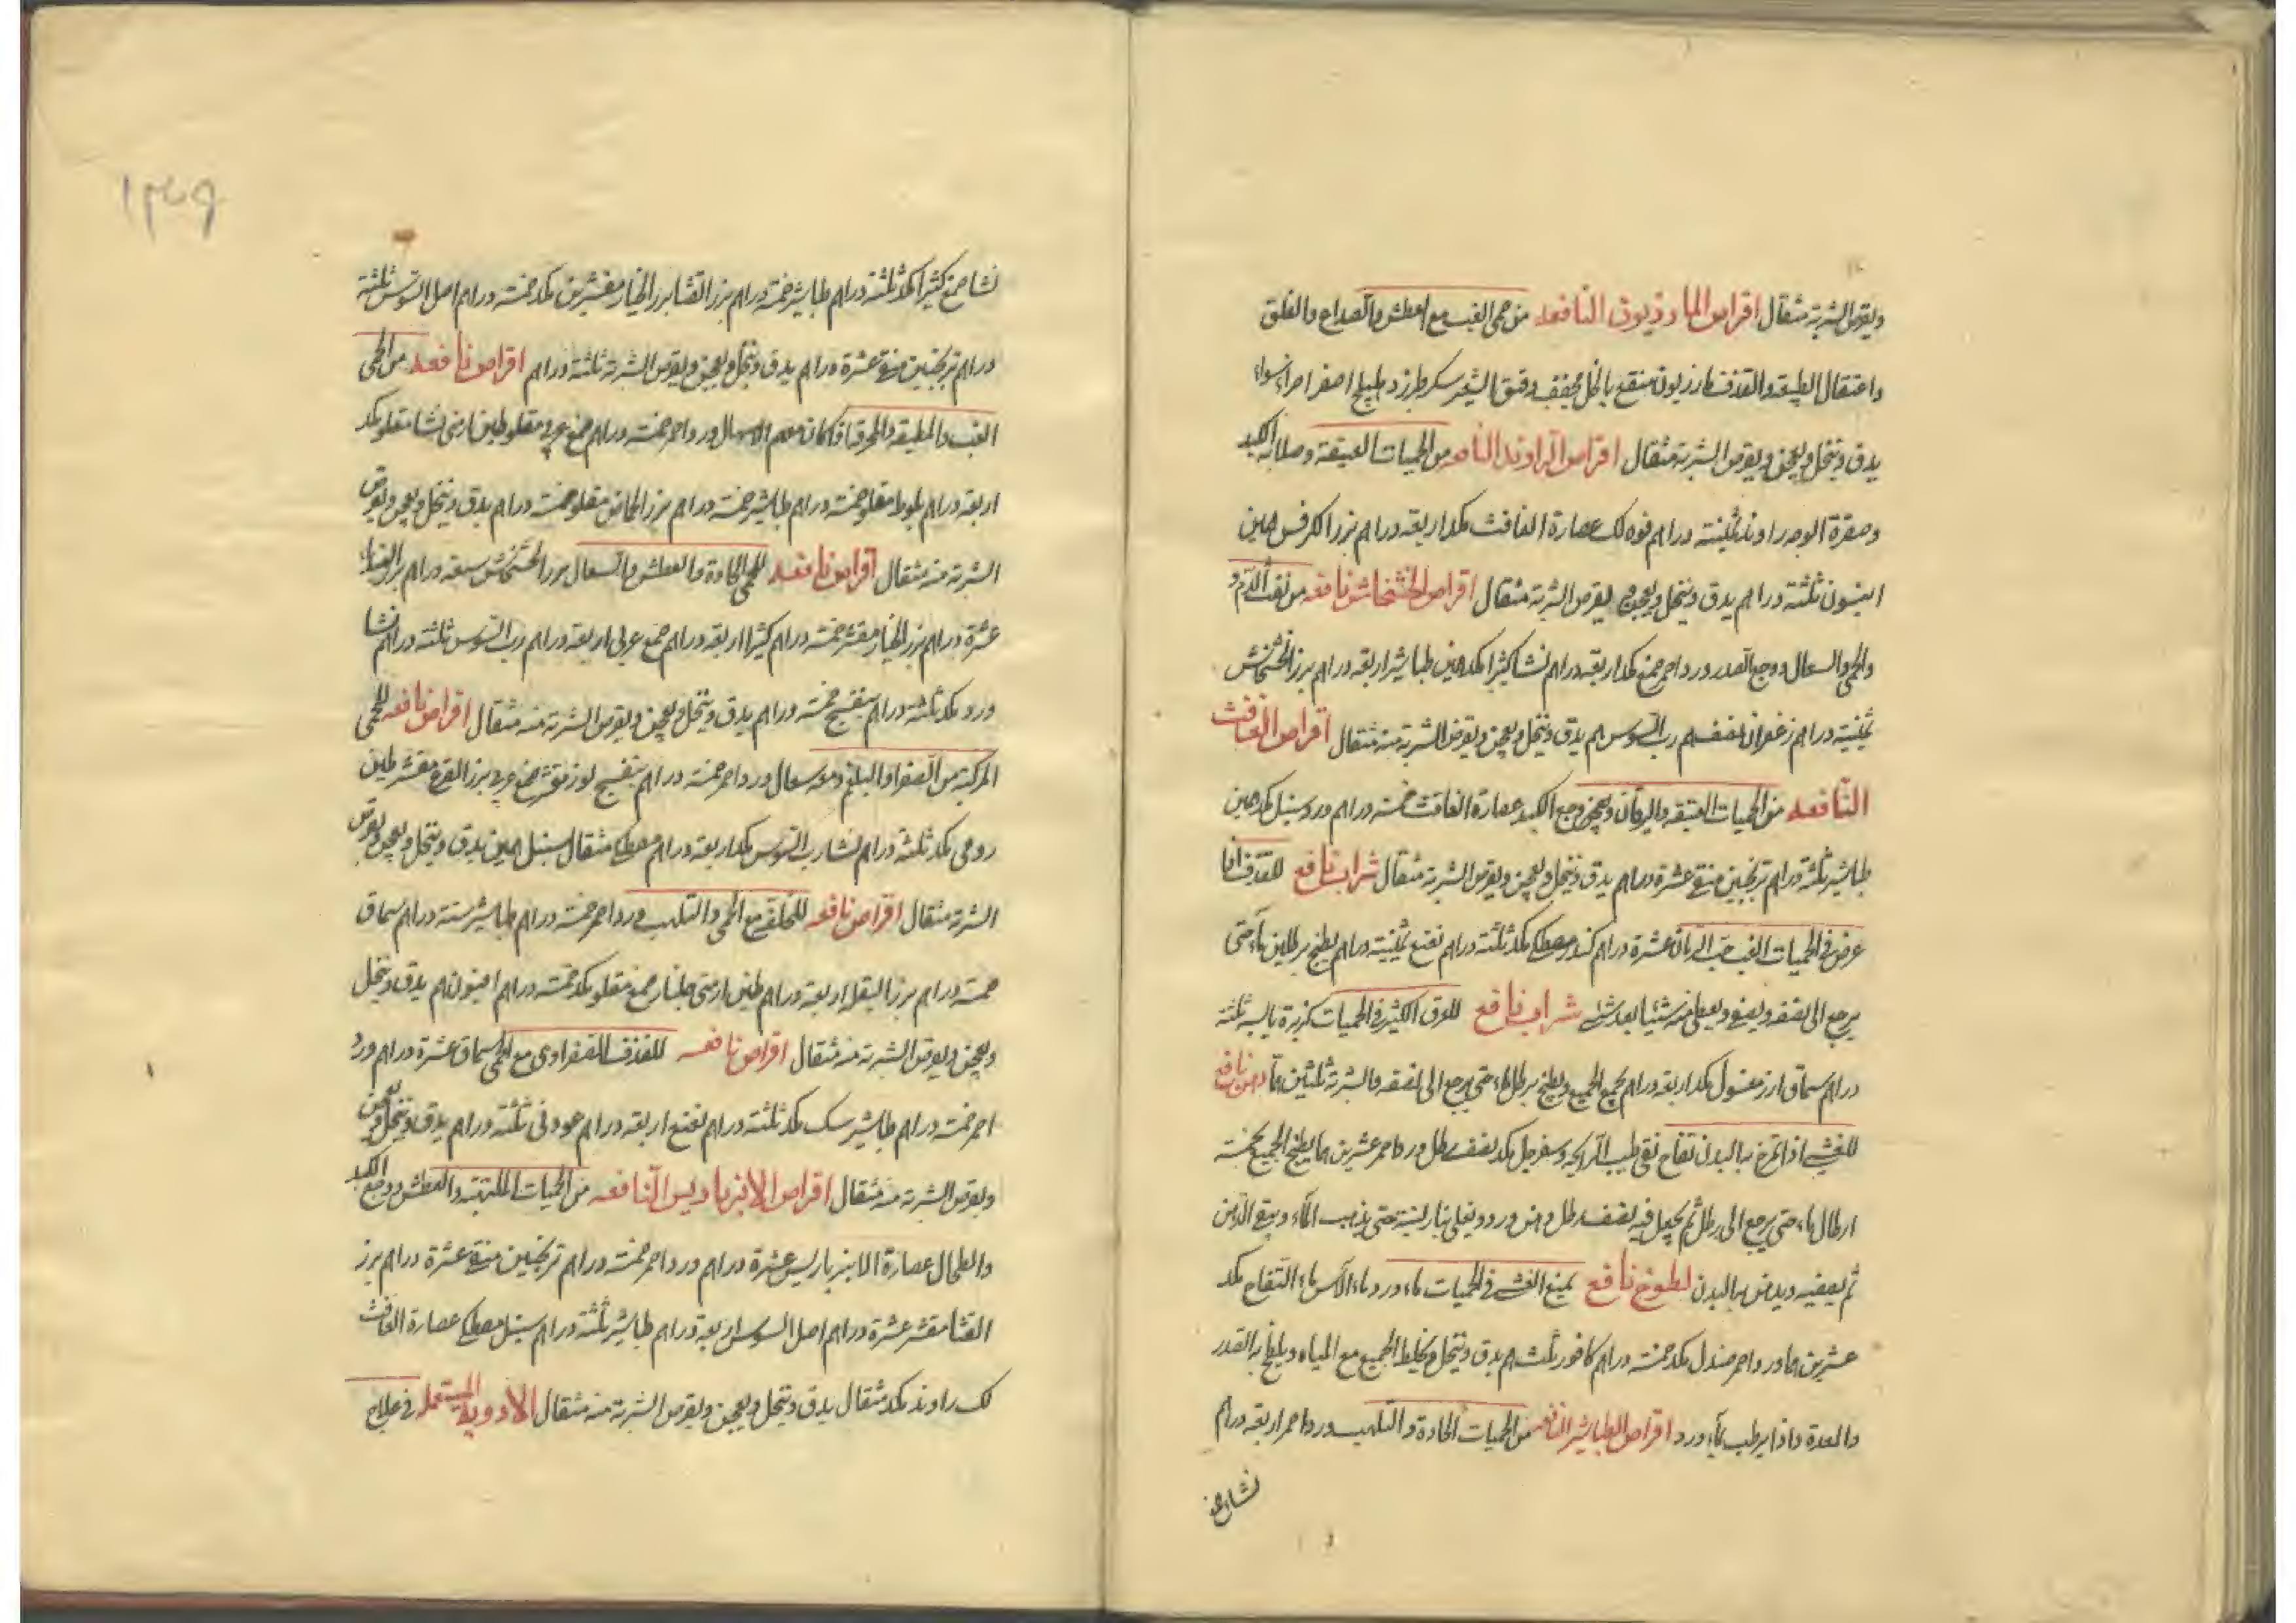 ويقرص الشربة مثقال اقراص المازريون النافعه من حمى الغب مع العطش والصداع والقلق
واعتقال الطبيعه والقذف مازريون منقع بالخل مجفف دقيق الشعير سكر طبرزد هليلج اصفر اجزاء سواء
يدق وينخل ويعجن ويقرص الشربة مثقال اقراص الراوند النافعه من الحميات العتيقة وصلابة الكبد
وصفرة الوجه راوند ثمنية دراهم فوه لك عصارة الغافث مكد اربعة دراهم بزر الكرفس همين
انيسون ثلثة دراهم يدق وينخل ويعجن ويقرص الشربة مثقال اقراص الخشخاش نافعه من نفث الدم و
والحمى والسعال ووجع الصدر ورد احمر صمغ مكد اربعة دراهم نشا كثيرا مكد همين طباشير اربعة دراهم بزر الخشخاش
ثمنية دراهم زعفران نصف هم رب السوس هم يدق وينخل ويعجن ويقرص الشربة منه مثقال اقراص الغافث
النافعه من الحميات العتيقه واليرقان ووجع الكبد عصارة الغافث خمسة دراهم ورد سنبل مكد همين
طباشير ثلثة دراهم ترنجبين منقى عشرة دراهم يدق وينخل ويعجن ويقرص الشربة مثقال شراب نافع للقذف اذا
عرض في الحميات الغب حب الرمان عشرة دراهم كندر مصطكى مكد ثلثة دراهم نعنع ثمنية دراهم يطبخ برطلين ماء حتى
يرجع الى نصفه ويصفى ويعطى منه شئيا بعد شئ شراب نافع للعرق الكثير في الحميات كزبرة يابسه ثلثة
دراهم سماق ارز مغسول مكد اربعة دراهم يجمع الجميع ويطبخ برطل ماء حتى يرجع الى نصفه والشربة ثلثين هما دهن نافع
للغشى اذا تمرخ به البدن تفاح نقى طيب الرايحه وسفرجل مكد نصف رطل ورد احمر عشرين هما يطبخ الجميع بخمسة
ارطال ماء حتى يرجع الى رطل ثم يجعل فيه نصف رطل دهن ورد ويغلى بنار لينة حتى يذهب الماء ويبقى الدهن
ثم يصفيه ويدهن به البدن لطوخ نافع يمنع الغشى في الحميات ماء ورد ماء الآس ماء التفاح مكد
عشرين هما ورد احمر صندل مكد خمسة دراهم كافور ثلث هم يدق وينخل ويخلط الجميع مع المياه ويلطخ به الصدر
والمعدة واذا يرطب بماء ورد اقراص الطباشير النافعه من الحميات الحادة والتلهب ورد احمر اربعة دراهم
نشا صمغ
نشا صمغ كثيرا مكد ثلثة دراهم طباشير خمسة دراهم بزر القثا بزر الخيار مقشرين مكد خمسة دراهم اصل السوس ثلثة
دراهم ترنجبين منقى عشرة دراهم يدق وينخل ويعجن ويقرص الشربة ثلثة دراهم اقراص نافعه من الحمى
الغب والمطبقه والمحرقة اذا كان معهم الاسهال ورد احمر خمسة دراهم صمغ عربى مقلو طين ارمنى نشا مقلو مكد
اربعة دراهم بلوط مقلو خمسة دراهم طباشير خمسة دراهم بزر الحماض مقلو خمسة دراهم يدق وينخل ويعجن ويقرص
الشربة منه مثقال اقراص نافعه للحمى الحادة والعطش والسعال بزر الخشخاش سبعة دراهم بزر القثاء
عشرة دراهم بزر الخيار مقشر خمسة دراهم كثيرا اربعة دراهم صمغ عربى اربعة دراهم رب السوس ثلثة دراهم نشا
ورد مكد ثلثة دراهم بنفسج خمسة دراهم يدق وينخل ويعجن ويقرص الشربة منه مثقال اقراص نافعه للحمى
المركبة من الصفرا والبلغم ومعه سعال ورد احمر خمسة دراهم بنفسج لوز مقشر صمغ عربى بزر القرع مقشر طين
رومى مكد ثلثة دراهم نشا رب السوس مكد اربعة دراهم مصطكى مثقال سنبل همين يدق وينخل ويعجن ويقرص
الشربة مثقال اقراص نافعه للخلفة مع الحمى والتلهب ورد احمر خمسة دراهم طباشير ستة دراهم سماق
خمسة دراهم بزر البقل اربعة دراهم طين ارمنى جلنار صمغ مقلو مكد خمسة دراهم افيون هم يدق وينخل
ويعجن ويقرص الشربة منه مثقال اقراص نافعه للقذف الصفراوى مع الحمى سماق عشرة دراهم ورد
احمر خمسة دراهم طباشير سك مكد ثلثة دراهم نعنع اربعة دراهم عود نى ثلثة دراهم يدق وينخل ويعجن
ويقرص الشربة منه مثقال اقراص الانبرباريس النافعه من الحميات الملتهبة والعطش ووجع الكبد
والطحال عصارة الانبرباريس عشرة دراهم ورد احمر خمسة دراهم ترنجبين منقى عشرة دراهم بزر
القثا مقشر عشرة دراهم اصل السوس اربعة دراهم طباشير ثلثة دراهم سنبل مصطكى عصارة الغافث
لك راوند مكد مثقال يدق وينخل ويعجن ويقرص الشربة منه مثقال الادوية المستعمله في علاج